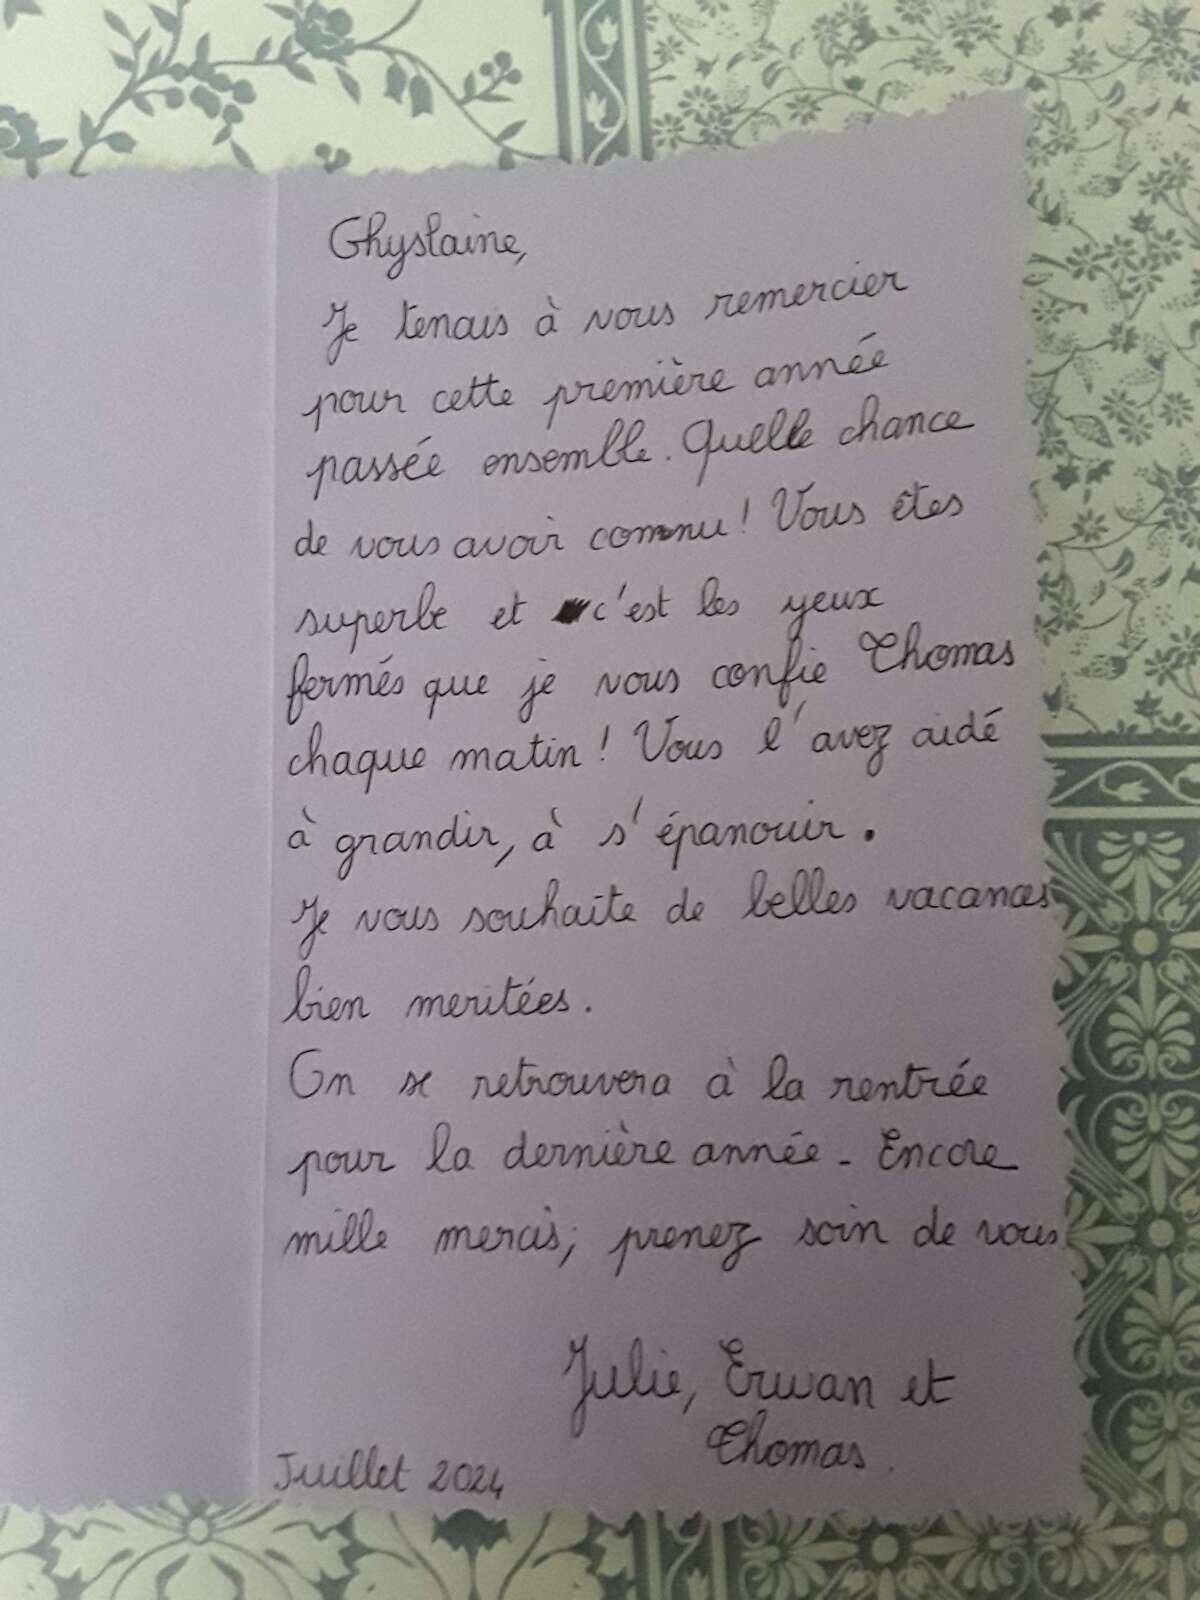 Ghyslaine,
Je tenais à vous remercier
pour cette première année
passée ensemble. Quelle chance
de vous avoir connu ! Vous êtes
superbe et c'est les yeux
fermés que je vous confie Thomas
chaque matin ! Vous l'avez aidé
à grandir, à s'épanouir.
Je vous souhaite de belles vacances
bien meritées.
On se retrouvera à la rentrée
pour la dernière année. Encore
mille mercis, prenez soin de vous
Julie, Erwan et
Thomas.
Juillet 2024